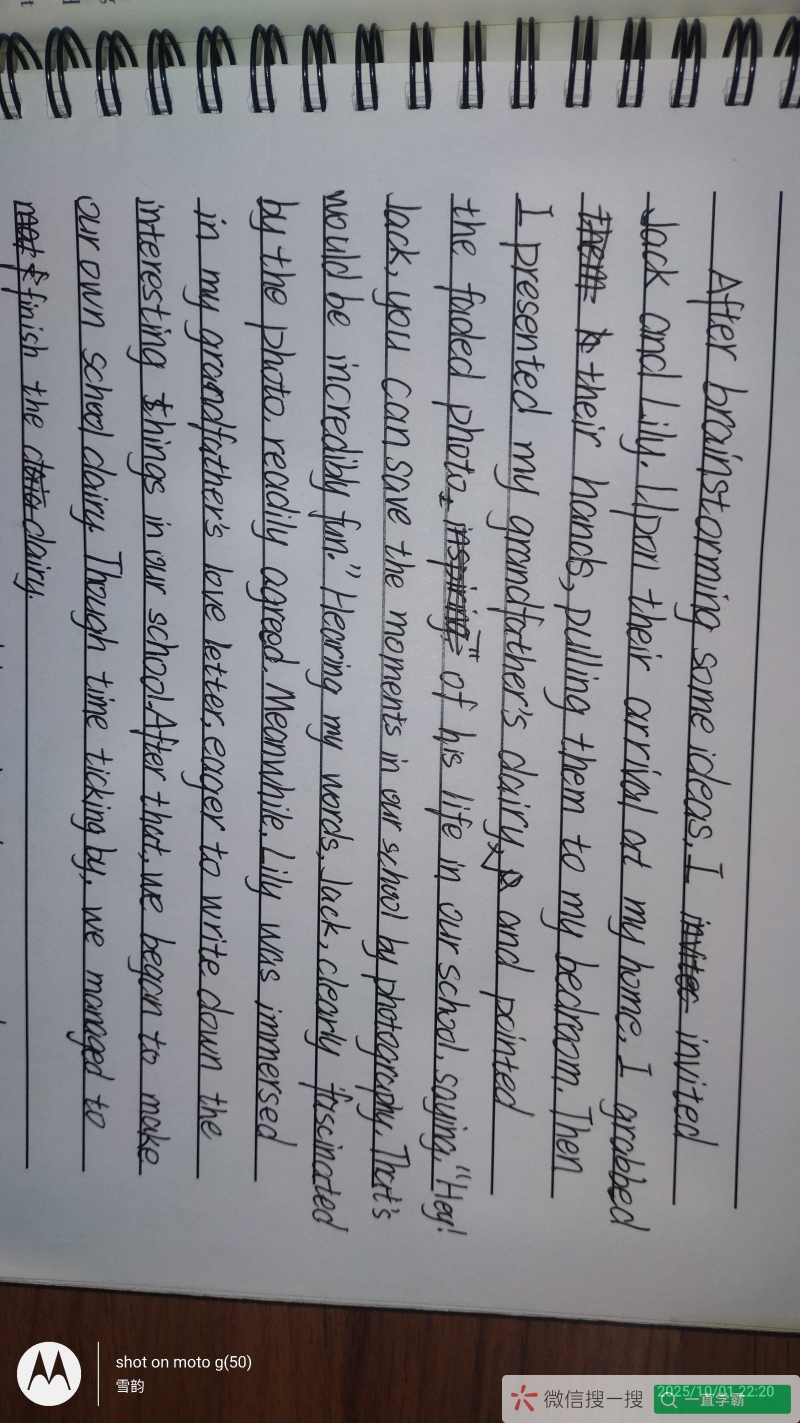 After brainstorming some ideas, I invited
Jack and Lily. Upon their arrival at my home, I grabbed
their hands, pulling them to my bedroom. Then
I presented my grandfather's dairy, and pointed
the faded photo, of his life in our school, saying, "Hey!
Jack, you can save the moments in our school by photography. That's
would be incredibly fun." Hearing my words, Jack, clearly fascinated
by the photo, readily agreed. Meanwhile, Lily was immersed
in my grandfather's love letter, eager to write down the
interesting things in our school. After that, we began to make
our own school dairy. Though time ticking by, we managed to
finish the dairy.
shot on moto g(50)
雪韵
微信搜一搜
2025/10/01 22:20
一直学霸